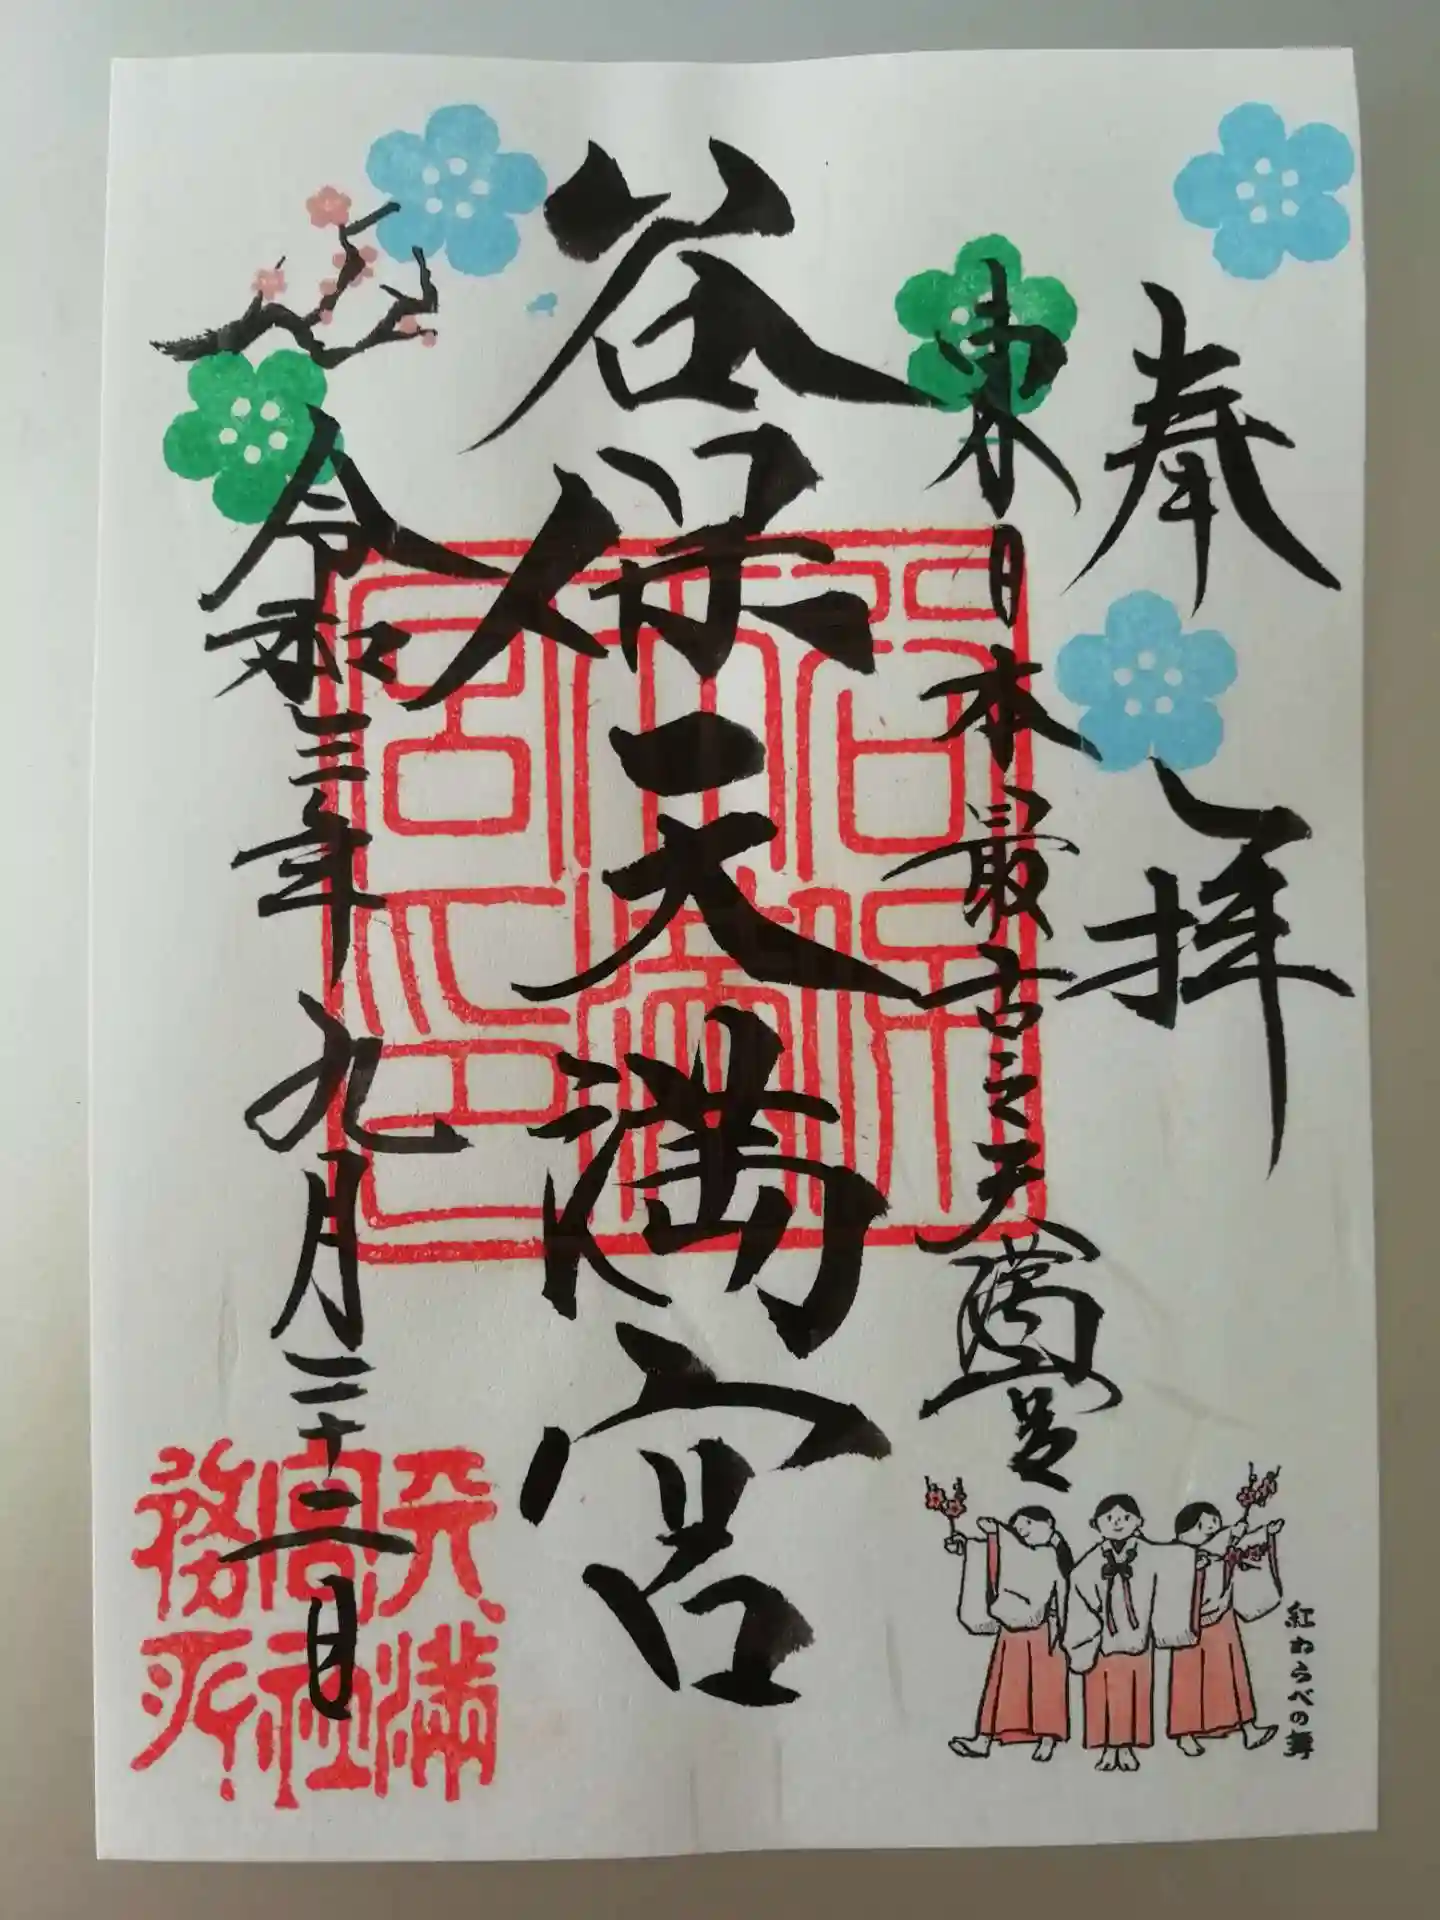 奉拝
東日本最古之天満宮
谷保天満宮
令和三年九月二十二日
谷保天満宮印
天満宮社務所
紅わらべの舞